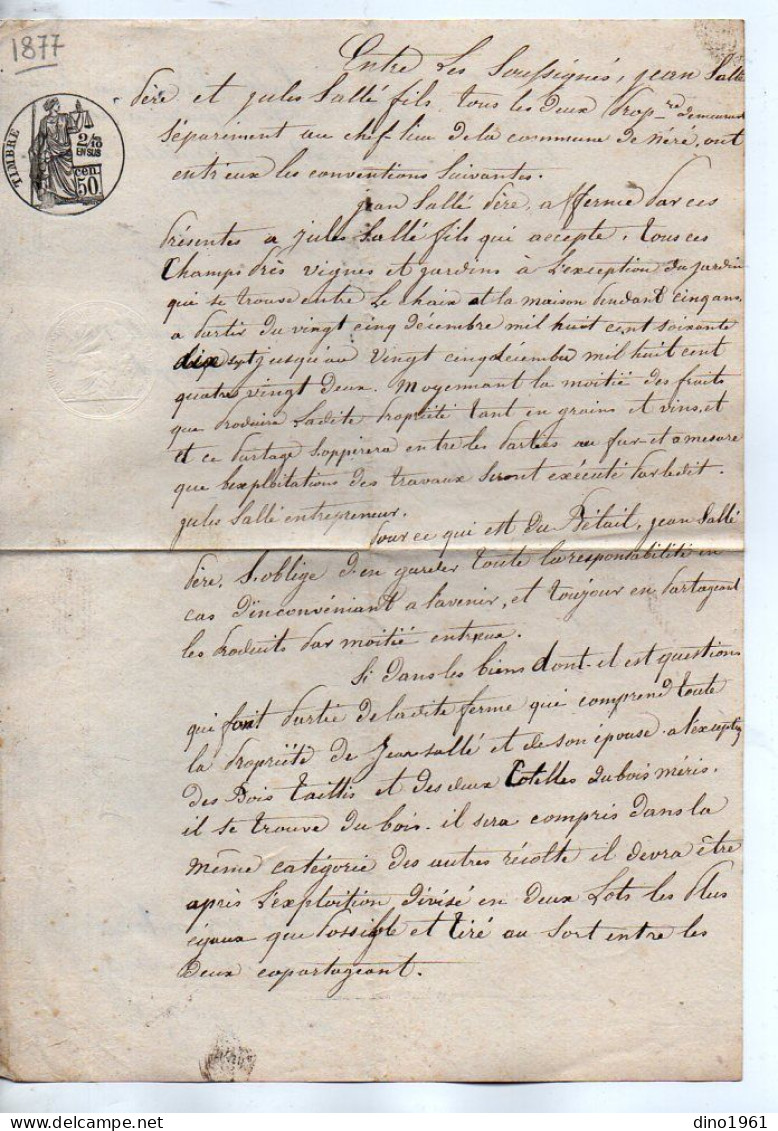 1877
TIMBRE
2/10
EN SUS
50 cen.
Entre les Soussignés, jean Sallé
père et jules Sallé fils, tous les deux Prop.re demeurant
Séparément au chef-lieu de la commune de Néré, ont
entr'eux les conventions Suivantes.
jean Sallé père, afferme par ces
présentes a jules Sallé fils qui accepte, tous ces
Champs près vignes et jardins à L'exception du jardin
qui se trouve entre Le chaix et la maison pendant cinq ans,
a partir du vingt cinq décembre mil huit cent soixante
dix sept jusqu'au vingt cinq décembre mil huit cent
quatre vingt deux. Moyennant la moitié des fruits
que produira Ladite Propriété tant en grains et vins, et
et ce partage Soppirera entre les parties au fur-et amesure
que l'exploitations des travaux seront exécuté par ledit.
jules Sallé entrepreneur.
Pour ce qui est du Bétail, jean Sallé
père. S'oblige d'en garder toute la responsabilité en
cas d'inconvéniant a l'avenir, et toujour en partageant
les produits par moitié entreux.
Si dans les biens dont-il est questions
qui font partie de ladite ferme qui comprend toute
la propriété de Jean Sallé et de son épouse. a l'exception
des Bois taillis et des deux Cotilles du bois méris.
il se trouve du bois. il sera compris dans la
même catégorie des autres récolte il devra être
après L'exploition divisé en deux Lots les plus
égaux que possible et tiré au sort entre les
deux copartageant.
dino1961